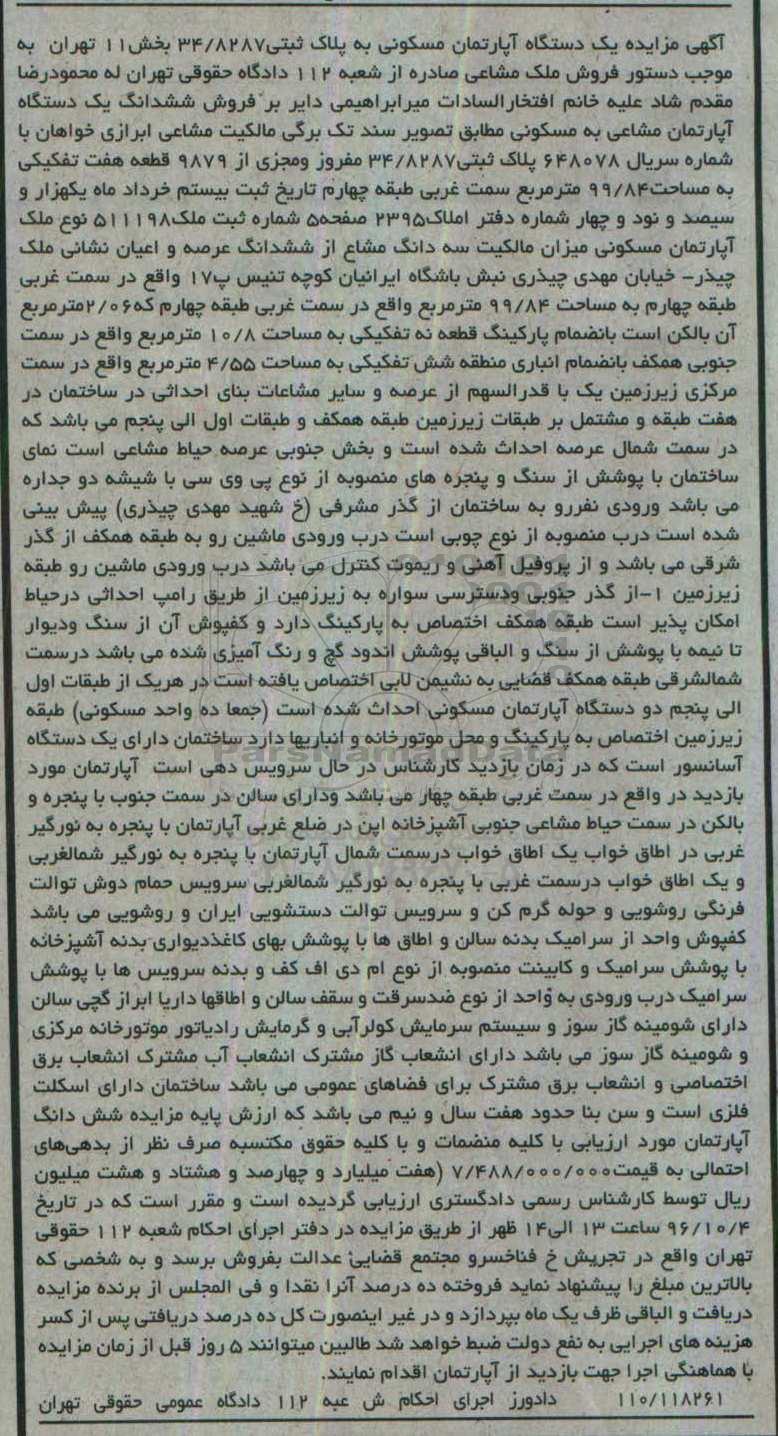 آگهی مزایده یک دستگاه آپارتمان مسکونی به پلاک ثبتی۳۴/۸۲۸۷ بخش۱۱ تهران به
موجب دستور فروش ملک مشاعی صادره از شعبه ۱۱۲ دادگاه حقوقی تهران له محمودرضا
مقدم شاد علیه خانم افتخارالسادات میرابراهیمی دایر بر فروش ششدانگ یک دستگاه
آپارتمان مشاعی به مسکونی مطابق تصویر سند تک برگی مالکیت مشاعی ابرازی خواهان با
شماره سریال ۶۴۸۰۷۸ پلاک ثبتی۳۴/۸۲۸۷ مفروز ومجزی از ۹۸۷۹ قطعه هفت تفکیکی
به مساحت۹۹/۸۴ مترمربع سمت غربی طبقه چهارم تاریخ ثبت بیستم خرداد ماه یکهزار و
سیصد و نود و چهار شماره دفتر املاک۲۳۹۵ صفحه۵ شماره ثبت ملک۵۱۱۱۹۸ نوع ملک
آپارتمان مسکونی میزان مالکیت سه دانگ مشاع از ششدانگ عرصه و اعیان نشانی ملک
چیذر- خیابان مهدی چیذری نبش باشگاه ایرانیان کوچه تنیس پ۱۷ واقع در سمت غربی
طبقه چهارم به مساحت ۹۹/۸۴ مترمربع واقع در سمت غربی طبقه چهارم که۲/۰۶مترمربع
آن بالکن است بانضمام پارکینگ قطعه نه تفکیکی به مساحت ۱۰/۸ مترمربع واقع در سمت
جنوبی همکف بانضمام انباری منطقه شش تفکیکی به مساحت ۴/۵۵ مترمربع واقع در سمت
مرکزی زیرزمین یک با قدرالسهم از عرصه و سایر مشاعات بنای احداثی در ساختمان در
هفت طبقه و مشتمل بر طبقات زیرزمین طبقه همکف و طبقات اول الی پنجم می باشد که
در سمت شمال عرصه احداث شده است و بخش جنوبی عرصه حیاط مشاعی است نمای
ساختمان با پوشش از سنگ و پنجره های منصوبه از نوع پی وی سی با شیشه دو جداره
می باشد ورودی نفررو به ساختمان از گذر مشرفی (خ شهید مهدی چیذری) پیش بینی
شده است درب منصوبه از نوع چوبی است درب ورودی ماشین رو به طبقه همکف از گذر
شرقی می باشد و از پروفیل آهنی و ریموت کنترل می باشد درب ورودی ماشین رو طبقه
زیرزمین ۱-از گذر جنوبی ودسترسی سواره به زیرزمین از طریق رامپ احداثی درحیاط
امکان پذیر است طبقه همکف اختصاص به پارکینگ دارد و کفپوش آن از سنگ ودیوار
تا نیمه با پوشش از سنگ و الباقی پوشش اندود گچ و رنگ آمیزی شده می باشد درسمت
شمالشرقی طبقه همکف فضایی به نشیمن لابی اختصاص یافته است در هریک از طبقات اول
الی پنجم دو دستگاه آپارتمان مسکونی احداث شده است (جمعا ده واحد مسکونی) طبقه
زیرزمین اختصاص به پارکینگ و محل موتورخانه و انباریها دارد ساختمان دارای یک دستگاه
آسانسور است که در زمان بازدید کارشناس در حال سرویس دهی است آپارتمان مورد
بازدید در واقع در سمت غربی طبقه چهار می باشد ودارای سالن در سمت جنوب با پنجره و
بالکن در سمت حیاط مشاعی جنوبی آشپزخانه اپن در ضلع غربی آپارتمان با پنجره به نورگیر
غربی در اطاق خواب یک اطاق خواب درسمت شمال آپارتمان با پنجره به نورگیر شمالغربی
و یک اطاق خواب درسمت غربی با پنجره به نورگیر شمالغربی سرویس حمام دوش توالت
فرنگی روشویی و حوله گرم کن و سرویس توالت دستشویی ایران و روشویی می باشد
کفپوش واحد از سرامیک بدنه سالن و اطاق ها با پوشش بهای کاغذدیواری بدنه آشپزخانه
با پوشش سرامیک و کابینت منصوبه از نوع ام دی اف کف و بدنه سرویس ها با پوشش
سرامیک درب ورودی به واحد از نوع ضدسرقت و سقف سالن و اطاقها داریا ابراز گچی سالن
دارای شومینه گاز سوز و سیستم سرمایش کولرآبی و گرمایش رادیاتور موتورخانه مرکزی
و شومینه گاز سوز می باشد دارای انشعاب گاز مشترک انشعاب آب مشترک انشعاب برق
اختصاصی و انشعاب برق مشترک برای فضاهای عمومی می باشد ساختمان دارای اسکلت
فلزی است و سن بنا حدود هفت سال و نیم می باشد که ارزش پایه مزایده شش دانگ
آپارتمان مورد ارزیابی با کلیه منضمات و با کلیه حقوق مکتسبه صرف نظر از بدهی‌های
احتمالی به قیمت۷/۴۸۸/۰۰۰/۰۰۰ (هفت میلیارد و چهارصد و هشتاد و هشت میلیون
ریال توسط کارشناس رسمی دادگستری ارزیابی گردیده است و مقرر است که در تاریخ
۹۶/۱۰/۴ ساعت ۱۳ الی۱۴ ظهر از طریق مزایده در دفتر اجرای احکام شعبه ۱۱۲ حقوقی
تهران واقع در تجریش خ فناخسرو مجتمع قضایی عدالت بفروش برسد و به شخصی که
بالاترین مبلغ را پیشنهاد نماید فروخته ده درصد آنرا نقدا و فی المجلس از برنده مزایده
دریافت و الباقی ظرف یک ماه بپردازد و در غیر اینصورت کل ده درصد دریافتی پس از کسر
هزینه های اجرایی به نفع دولت ضبط خواهد شد طالبین میتوانند ۵ روز قبل از زمان مزایده
با هماهنگی اجرا جهت بازدید از آپارتمان اقدام نمایند.
۱۱۰/۱۱۸۲۶۱ دادورز اجرای احکام ش عبه ۱۱۲ دادگاه عمومی حقوقی تهران